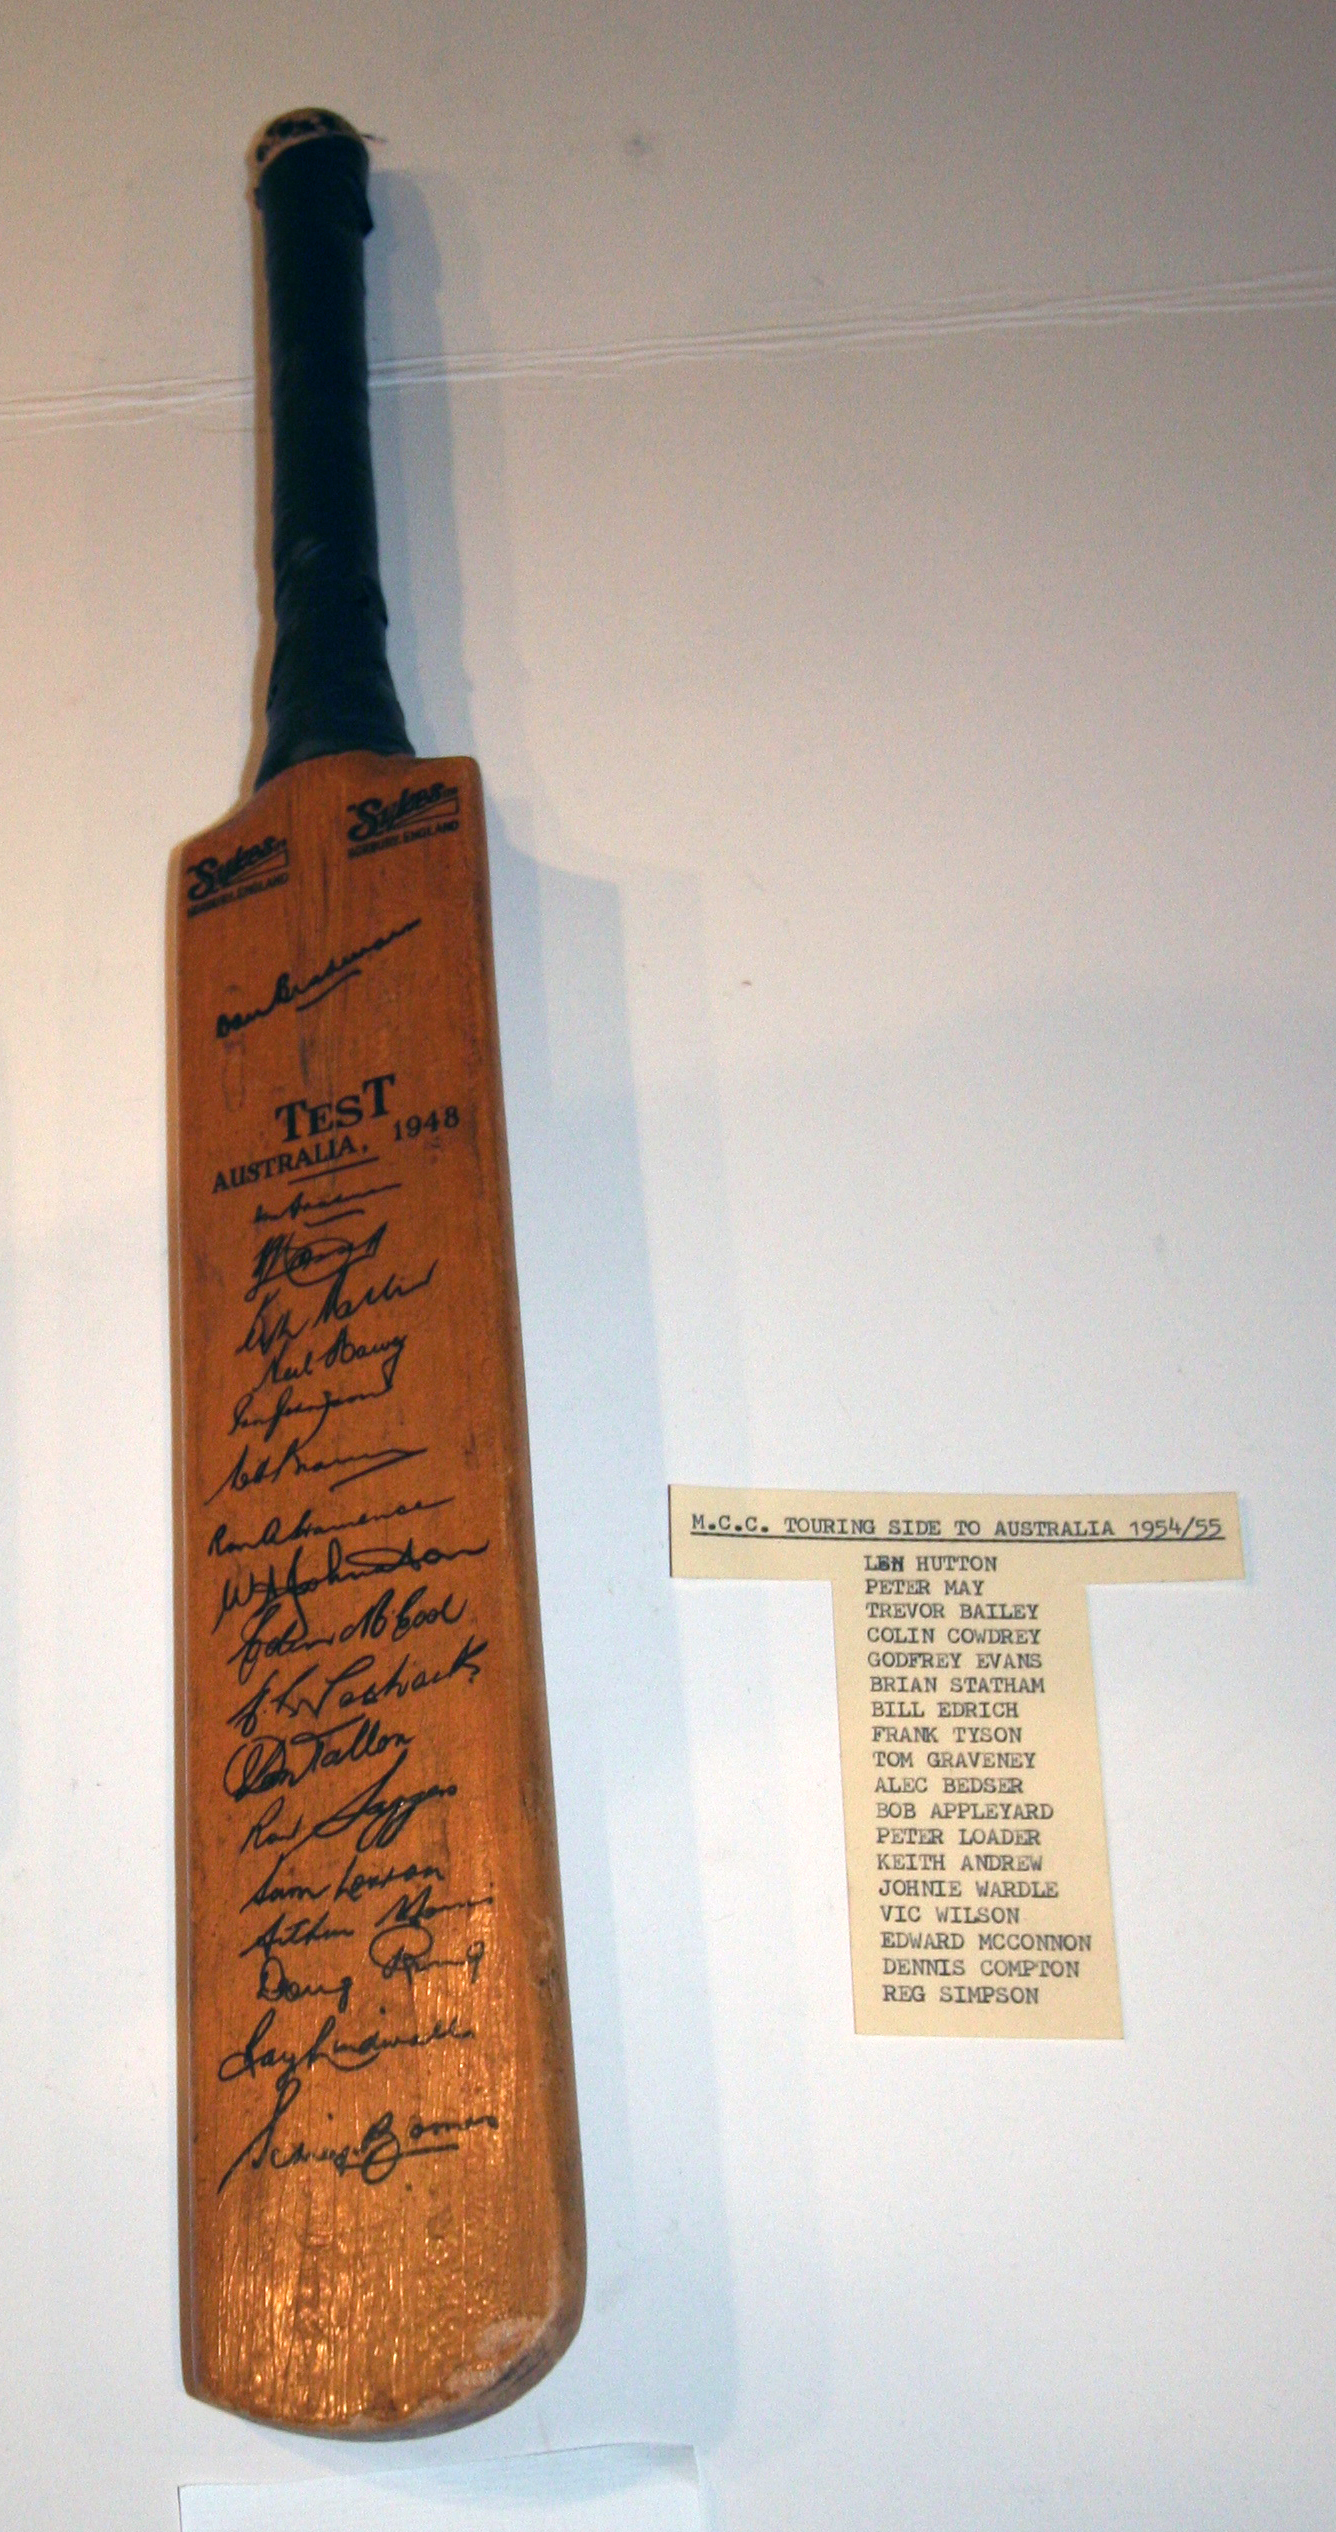 Sykes
HORBURY. ENGLAND
Sykes
HORBURY. ENGLAND
Don Bradman
TEST
AUSTRALIA, 1948
Neil Harvey
W A Johnston
Colin McCool
Don Tallon
Ron Saggers
Sam Loxton
Arthur Morris
Doug Ring
Ray Lindwall
Sidney Barnes
M.C.C. TOURING SIDE TO AUSTRALIA 1954/55
LEN HUTTON
PETER MAY
TREVOR BAILEY
COLIN COWDREY
GODFREY EVANS
BRIAN STATHAM
BILL EDRICH
FRANK TYSON
TOM GRAVENEY
ALEC BEDSER
BOB APPLEYARD
PETER LOADER
KEITH ANDREW
JOHNIE WARDLE
VIC WILSON
EDWARD MCCONNON
DENNIS COMPTON
REG SIMPSON